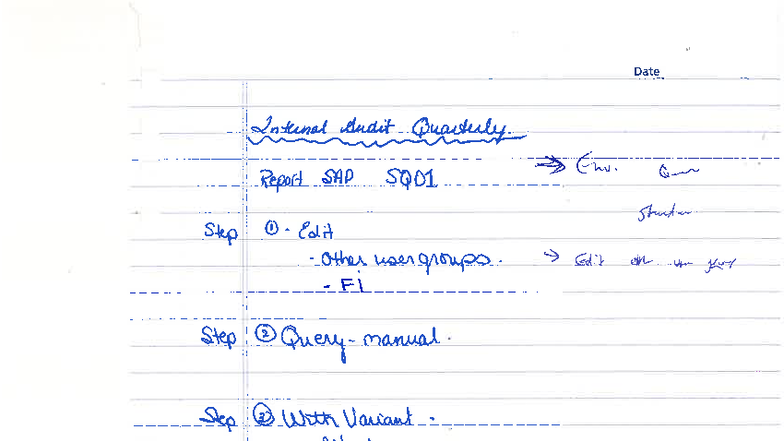 Date
Internal Audit Quarterly.
Report SAP SQ01 → Env.
Step ① - Edit
- Other user groups. → Edit
- Fi
Step ② Query - manual.
Step ③ With Variant -